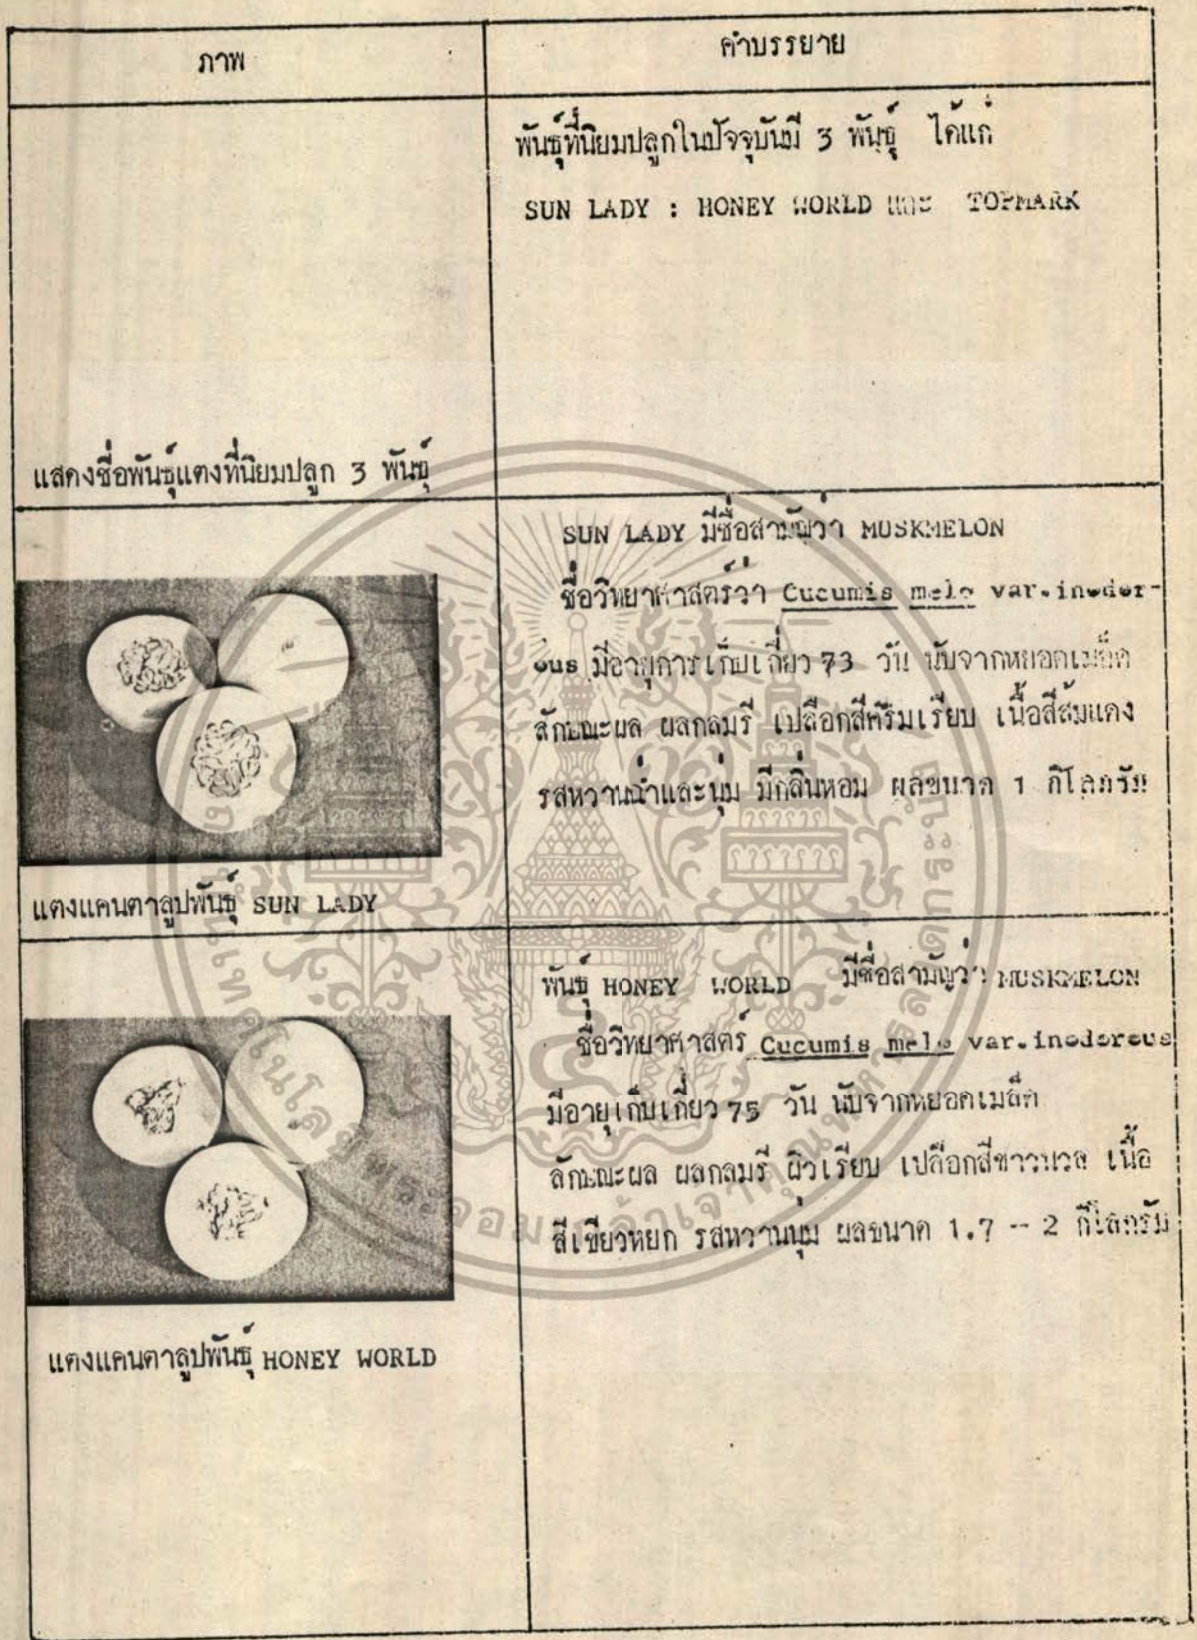 ภาพ
คำบรรยาย
พันธุ์ที่นิยมปลูกในปัจจุบันมี 3 พันธุ์ ได้แก่
SUN LADY : HONEY WORLD และ TOPMARK
แสดงชื่อพันธุ์แตงที่นิยมปลูก 3 พันธุ์
SUN LADY มีชื่อสามัญว่า MUSKMELON
ชื่อวิทยาศาสตร์ว่า Cucumis melo var.inodor-
ous มีอายุการเก็บเกี่ยว 73 วัน นับจากหยอดเมล็ด
ลักษณะผล ผลกลมรี เปลือกสีครีมเรียบ เนื้อสีส้มแดง
รสหวานฉ่ำและนุ่ม มีกลิ่นหอม ผลขนาด 1 กิโลกรัม
แตงแคนตาลูปพันธุ์ SUN LADY
พันธุ์ HONEY WORLD มีชื่อสามัญว่า MUSKMELON
ชื่อวิทยาศาสตร์ Cucumis melo var.inodoreus
มีอายุเก็บเกี่ยว 75 วัน นับจากหยอดเมล็ด
ลักษณะผล ผลกลมรี ผิวเรียบ เปลือกสีขาวนวล เนื้อ
สีเขียวหยก รสหวานนุ่ม ผลขนาด 1.7 -- 2 กิโลกรัม
แตงแคนตาลูปพันธุ์ HONEY WORLD